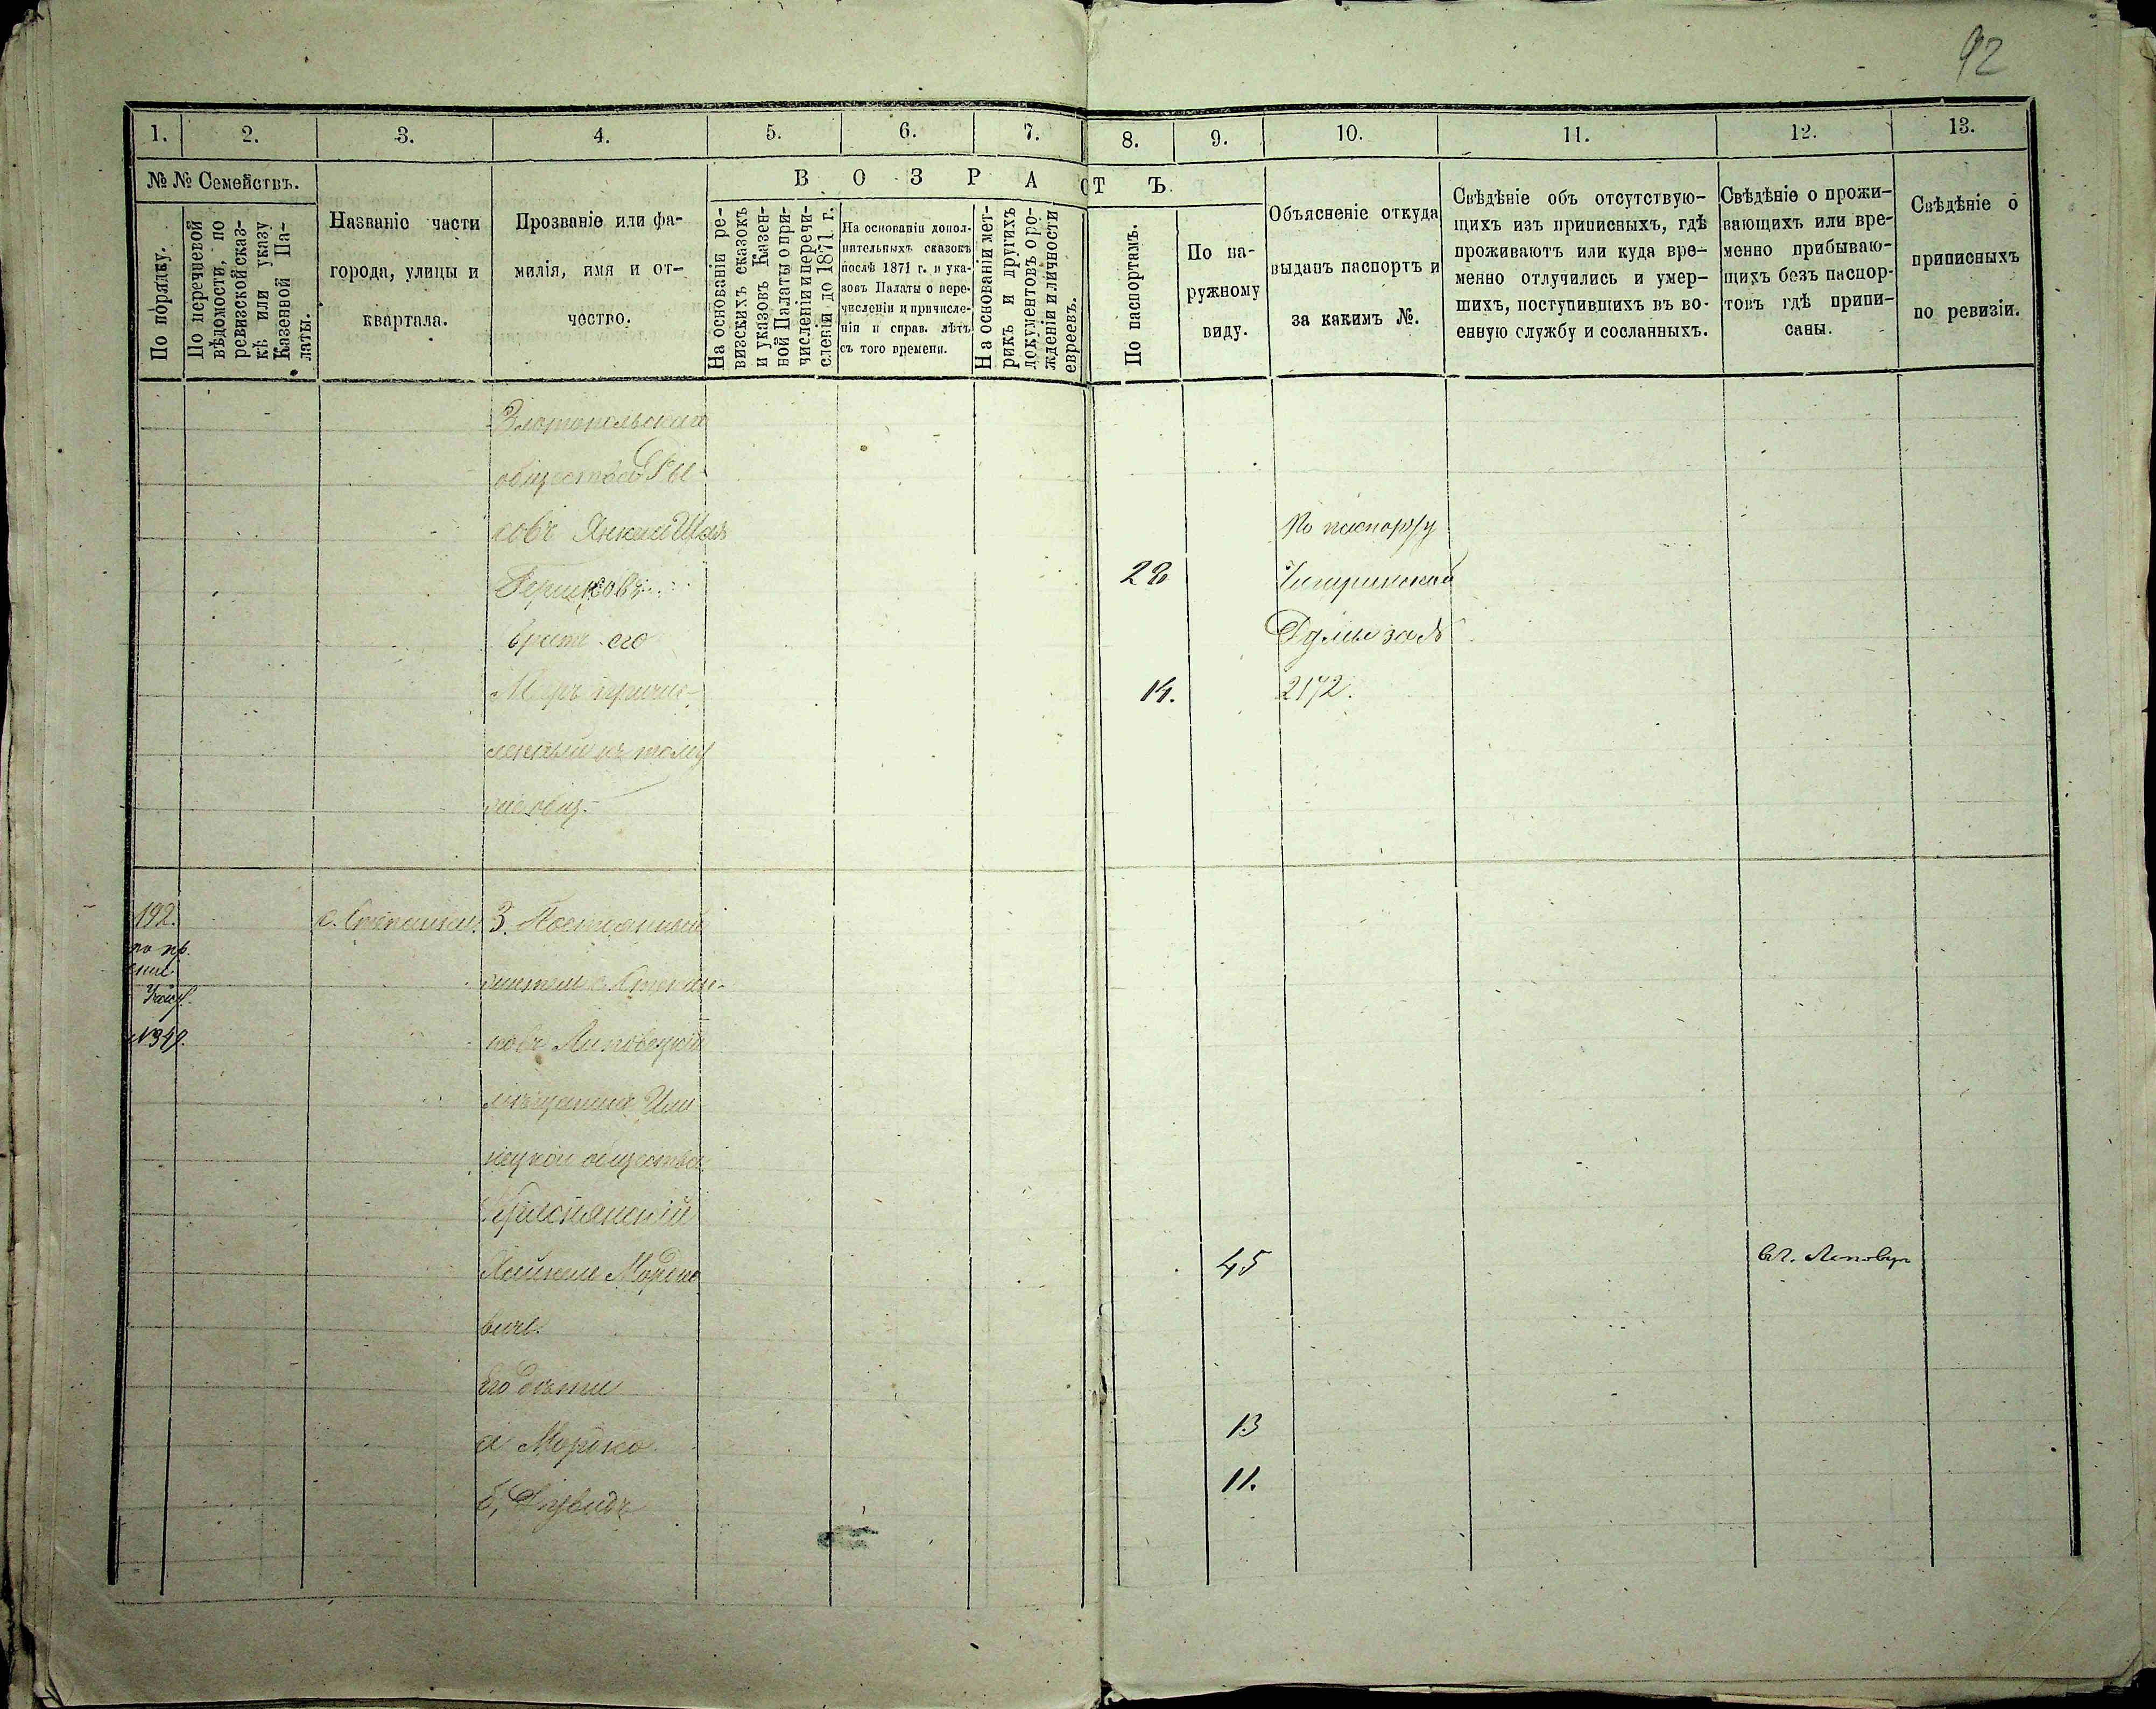 92
1. 2. 3. 4. 5. 6. 7. 8. 9. 10. 11. 12. 13.
№ № Семействъ.
По порядку.
По перечневой
вѣдомости, по
ревизской сказ-
кѣ или указу
Казенной Па-
латы.
Названіе части
города, улицы и
квартала.
Прозваніе или фа-
милія, имя и от-
чество.
ВОЗРАСТЪ
На основаніи ре-
визскихъ сказокъ
и указовъ Казен-
ной Палаты о при-
численіи и перечи-
сленія до 1871 г.
На основаніи допол-
нительныхъ сказокъ
послѣ 1871 г. и ука-
зовъ Палаты о пере-
численіи и причисле-
ніи и справ. лѣтъ
съ того времени.
На основаніи мет-
рикъ и другихъ
документовъ о ро-
жденіи и личности
евреевъ.
По паспортамъ.
По на-
ружному
виду.
Объясненіе откуда
выданъ паспортъ и
за какимъ №.
Свѣдѣніе объ отсутствую-
щихъ изъ приписныхъ, гдѣ
проживаютъ или куда вре-
менно отлучились и умер-
шихъ, поступившихъ въ во-
енную службу и сосланныхъ.
Свѣдѣніе о прожи-
вающихъ или вре-
менно прибываю-
щихъ безъ паспор-
товъ гдѣ припи-
саны.
Свѣдѣніе о
приписныхъ
по ревизіи.
Златопольскаго
общества
совъ Янкель По паспорту
Гершковъ 28 Чигиринской
братъ его Думы за №
Меръ причис- 14. 2172.
ленный къ тому
же общ.
192. с. 3. Постоянный
по пр.
жители с.
№349. Липовецкій
мѣщанинъ Или-
нецкой общества
Хайкель Мордко 45
вичъ.
Его дѣти
а Мордко 13
б, Дувидъ 11.